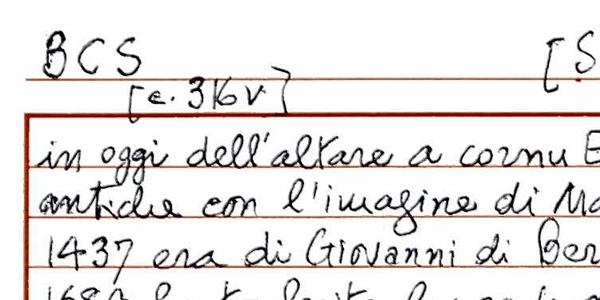 BCS [S
[c. 316v]
in oggi dell'altare a cornu E
antiche con l'imagine di Ma
1437 era di Giovanni di Ber